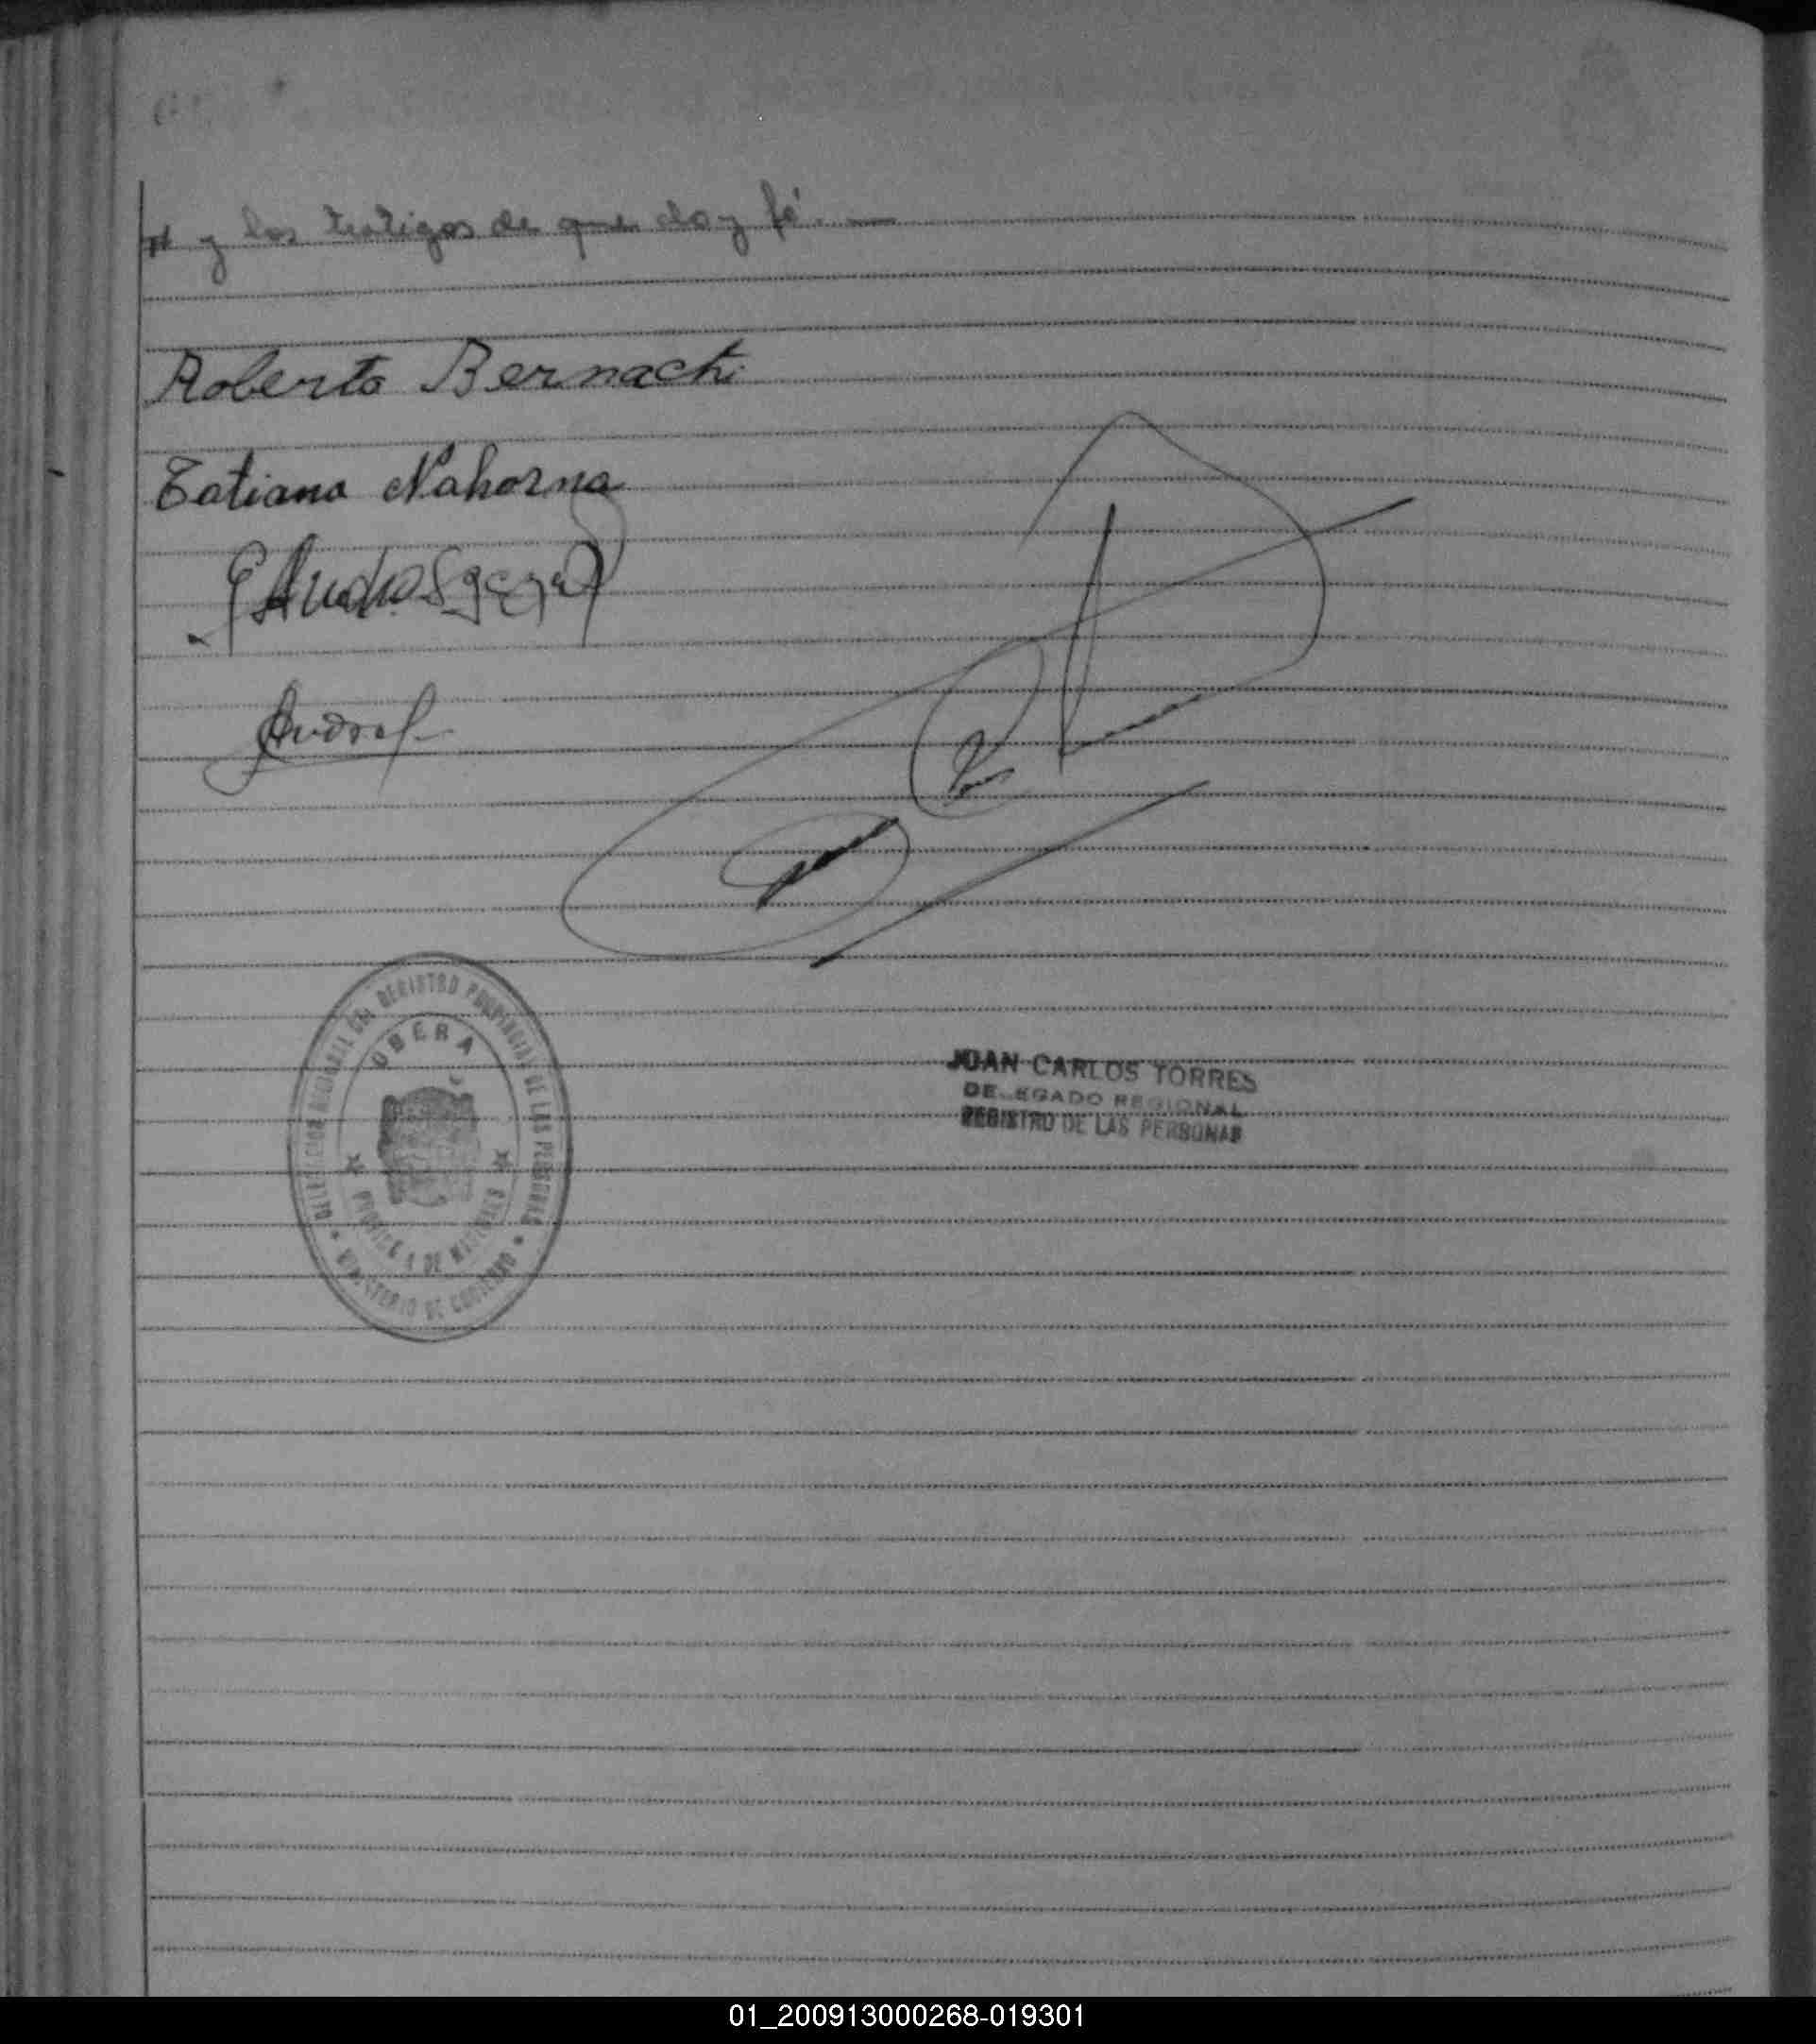 y los testigos de que doy fé. —
Roberto Bernachi
Tatiana Nahorna
DELEGACION REGIONAL DEL REGISTRO PROVINCIAL DE LAS PERSONAS
OBERA
PROVINCIA DE MISIONES
MINISTERIO DE GOBIERNO
JUAN CARLOS TORRES
DELEGADO REGIONAL
REGISTRO DE LAS PERSONAS
01_200913000268-019301